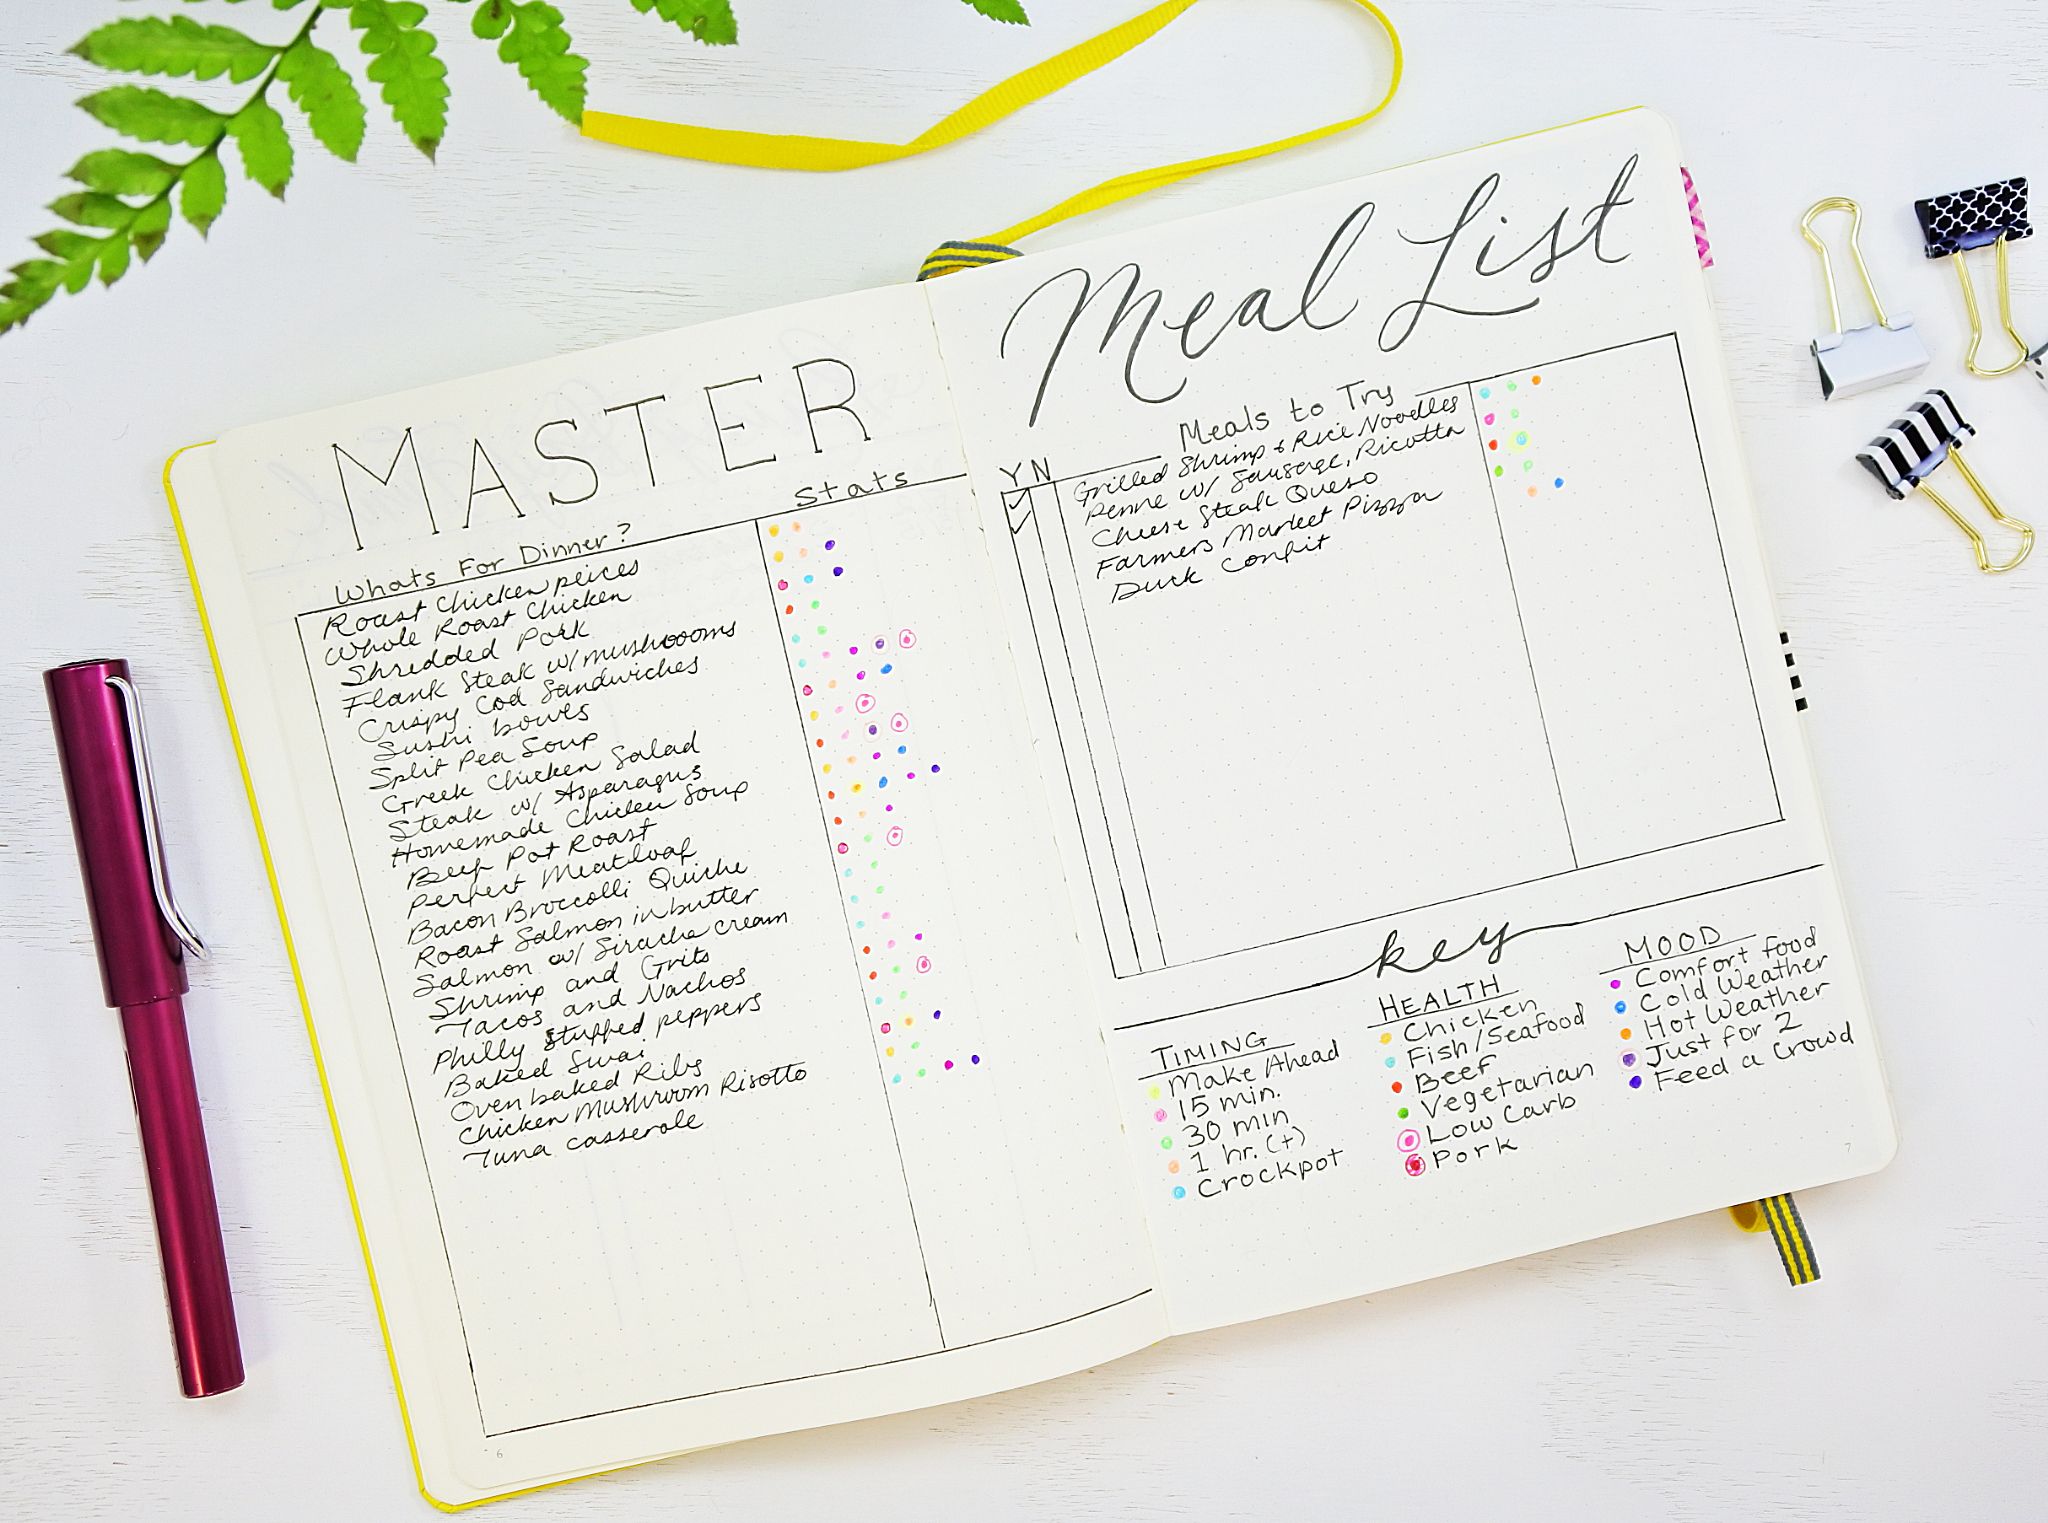 MASTER
Whats For Dinner?
Stats
Roast Chicken peices
Whole Roast Chicken
Shredded Pork
Flank Steak w/ mushrooms
Crispy Cod Sandwiches
Sushi bowls
Split Pea Soup
Greek Chicken Salad
Steak w/ Asparagus
Homemade Chicken Soup
Beef Pot Roast
Perfect Meatloaf
Bacon Broccolli Quiche
Roast Salmon in butter
Salmon w/ Siracha cream
Shrimp and Grits
Tacos and Nachos
Philly stuffed peppers
Baked Swai
Oven baked Ribs
Chicken Mushroom Risotto
Tuna casserole
6
Meal List
Y N
Meals to Try
Grilled Shrimp & Rice Noodles
Penne w/ Sausage, Ricotta
Cheese Steak Queso
Farmers Market Pizza
Duck Confit
key
TIMING
Make Ahead
15 min.
30 min
1 hr. (+)
Crockpot
HEALTH
Chicken
Fish/Seafood
Beef
Vegetarian
Low Carb
Pork
MOOD
Comfort food
Cold Weather
Hot Weather
Just for 2
Feed a Crowd
7